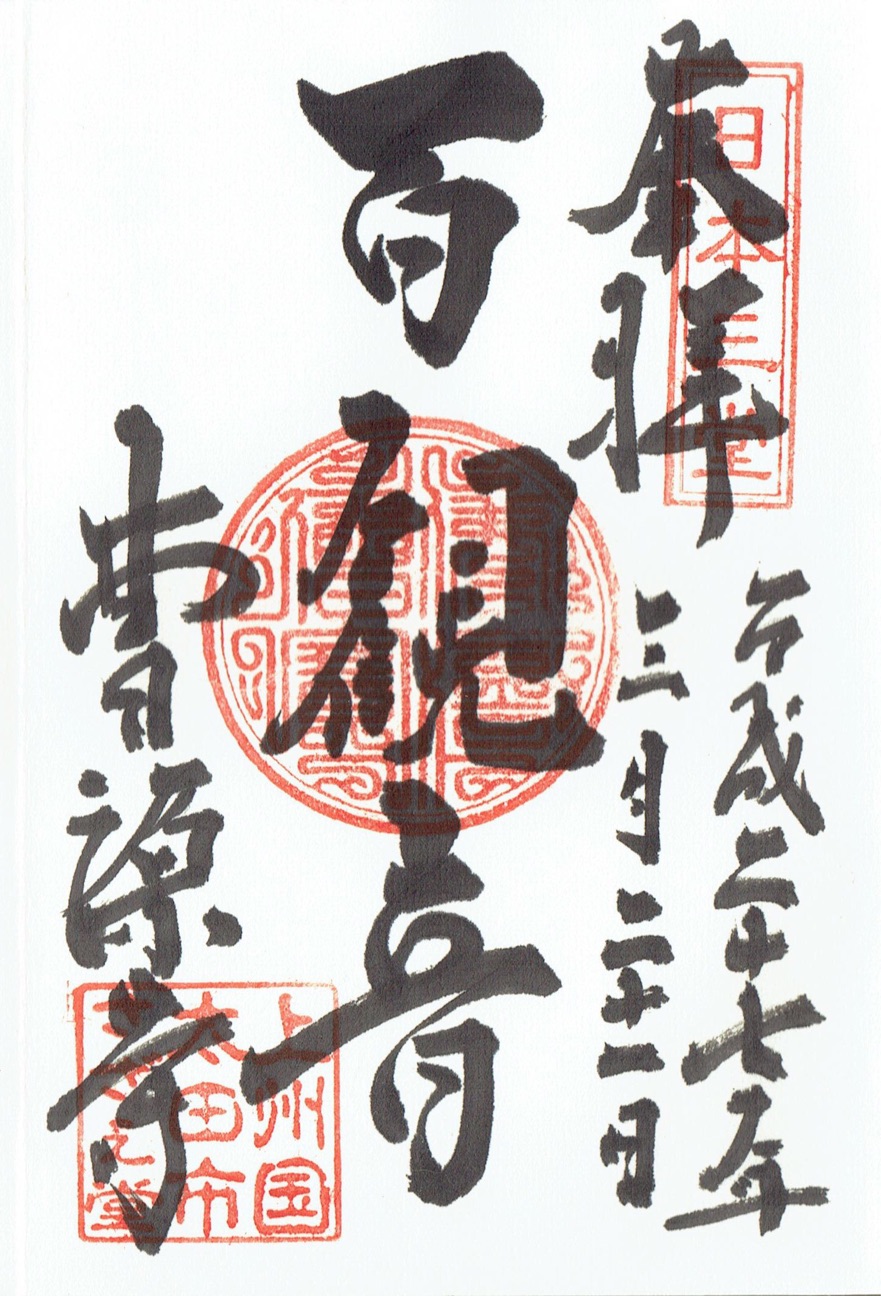 奉拝
日本三堂
平成二十七年
三月二十一日
百観音
曹源寺
上州国
太田市
さざえ堂